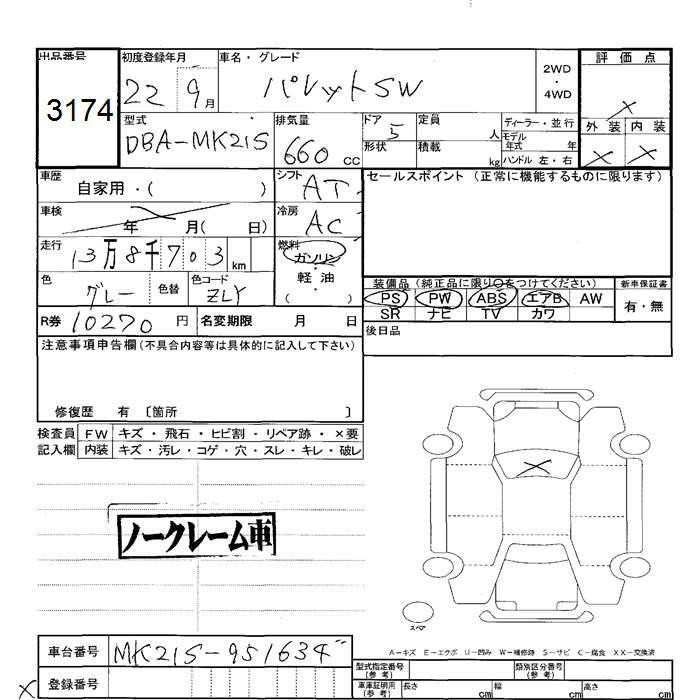 出品番号 初度登録年月 車名・グレード 評価点
3174 22 9月 パレットSW 2WD ・ 4WD ×
型式 排気量 ドア 定員 ディーラー・並行 外装 内装
DBA-MK21S 660cc 5 人 モデル年式 年 × ×
形状 積載 kg ハンドル 左・右
車歴 自家用・( ) シフト AT セールスポイント (正常に機能するものに限ります)
車検 年 月( 日) 冷房 AC
走行 13万8千703km 燃料 ガソリン
軽油
( )
色 グレー 色替 色コード ZLY
装備品 (純正品に限り○をつけてください) 新車保証書
PS PW ABS エアB AW 有・無
SR ナビ TV カワ
R券 10270円 名変期限 月 日 後日品
注意事項申告欄(不具合内容等は具体的に記入して下さい)
修復歴 有 〔箇所 〕
検査員 FW キズ・飛石・ヒビ割・リペア跡・×要
記入欄 内装 キズ・汚レ・コゲ・穴・スレ・キレ・破レ
×
ノークレーム車
スペア
A-キズ E-エクボ U-凹み W-補修跡 S-サビ C-腐食 XX-交換済
車台番号 MK21S-951634
型式指定番号(参考) 類別区分番号(参考)
× 登録番号
車庫証明用(参考) 長さ cm 幅 cm 高さ cm